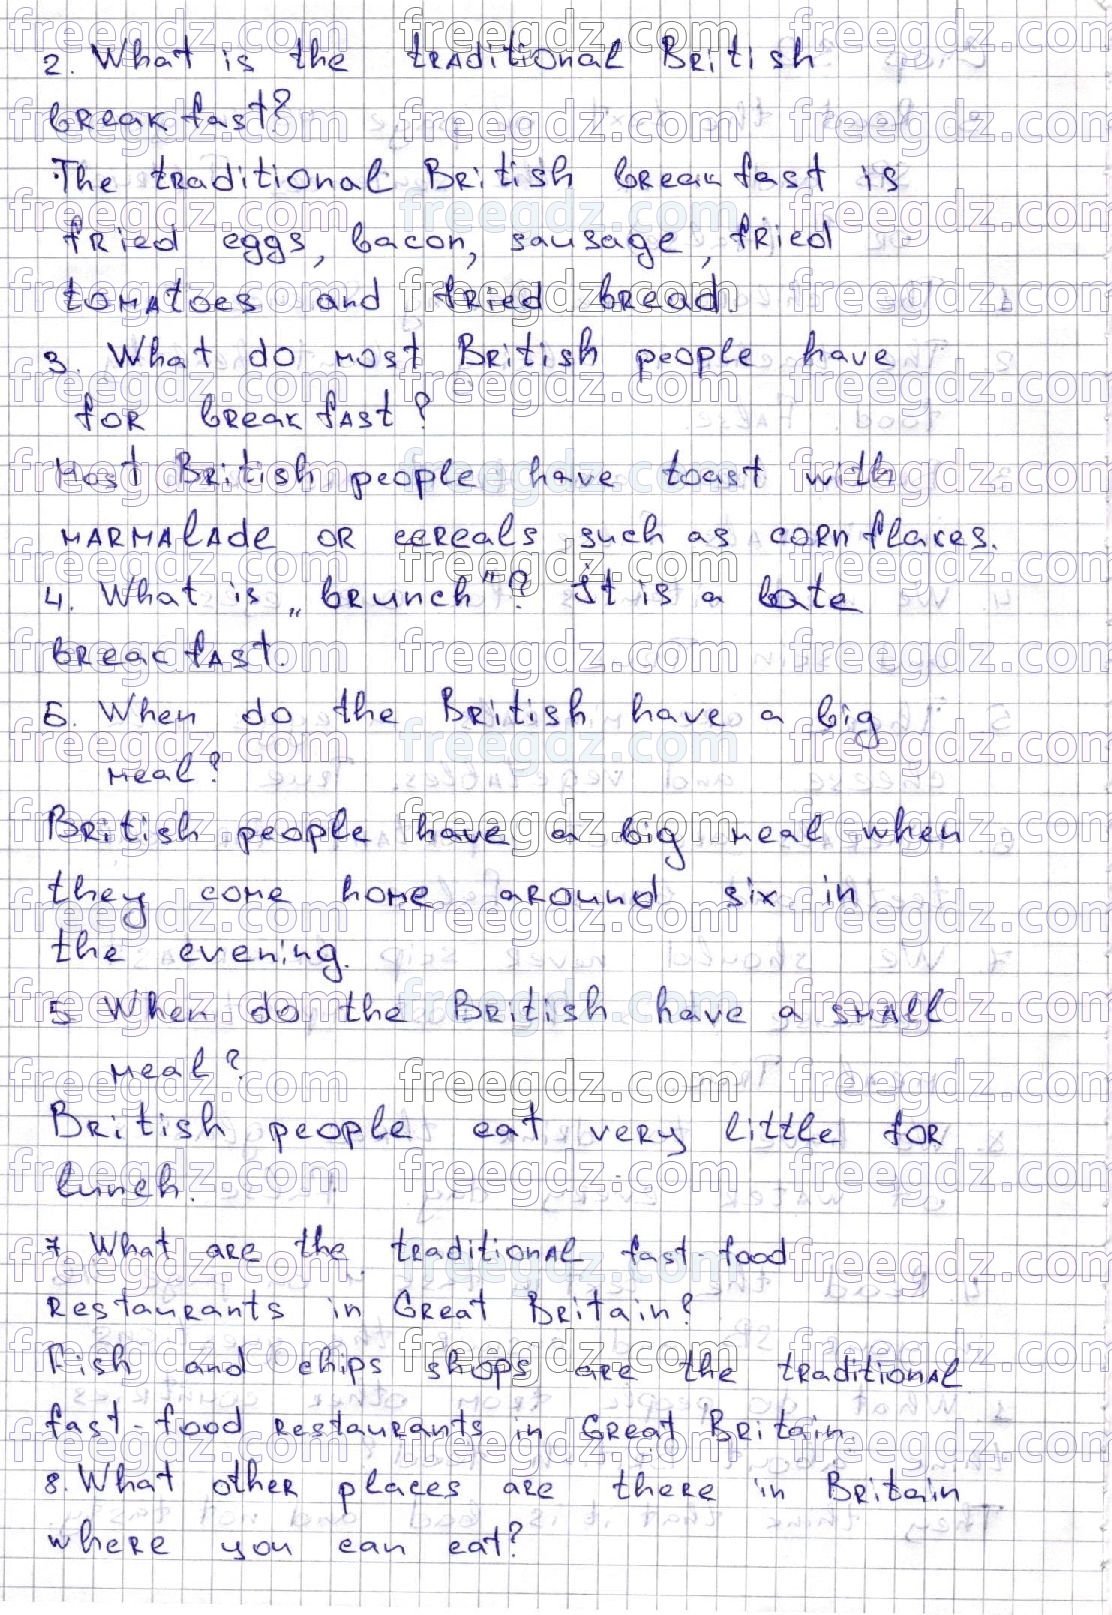 2. What is the traditional British
breakfast?
The traditional British breakfast is
fried eggs, bacon, sausage, fried
tomatoes and fried bread.
3. What do most British people have
for breakfast?
Most British people have toast with
marmalade or cereals such as corn flaces.
4. What is „brunch"? It is a late
breacfast.
6. When do the British have a big
meal?
British people have a big meal when
they come home around six in
the evening.
5 When do the British have a small
meal?
British people eat very little for
lunch.
7 What are the traditional fast-food
restaurants in Great Britain?
Fish and chips shops are the traditional
fast-food restaurants in Great Britain
8. What other places are there in Britain
where you can eat?
freegdz.com